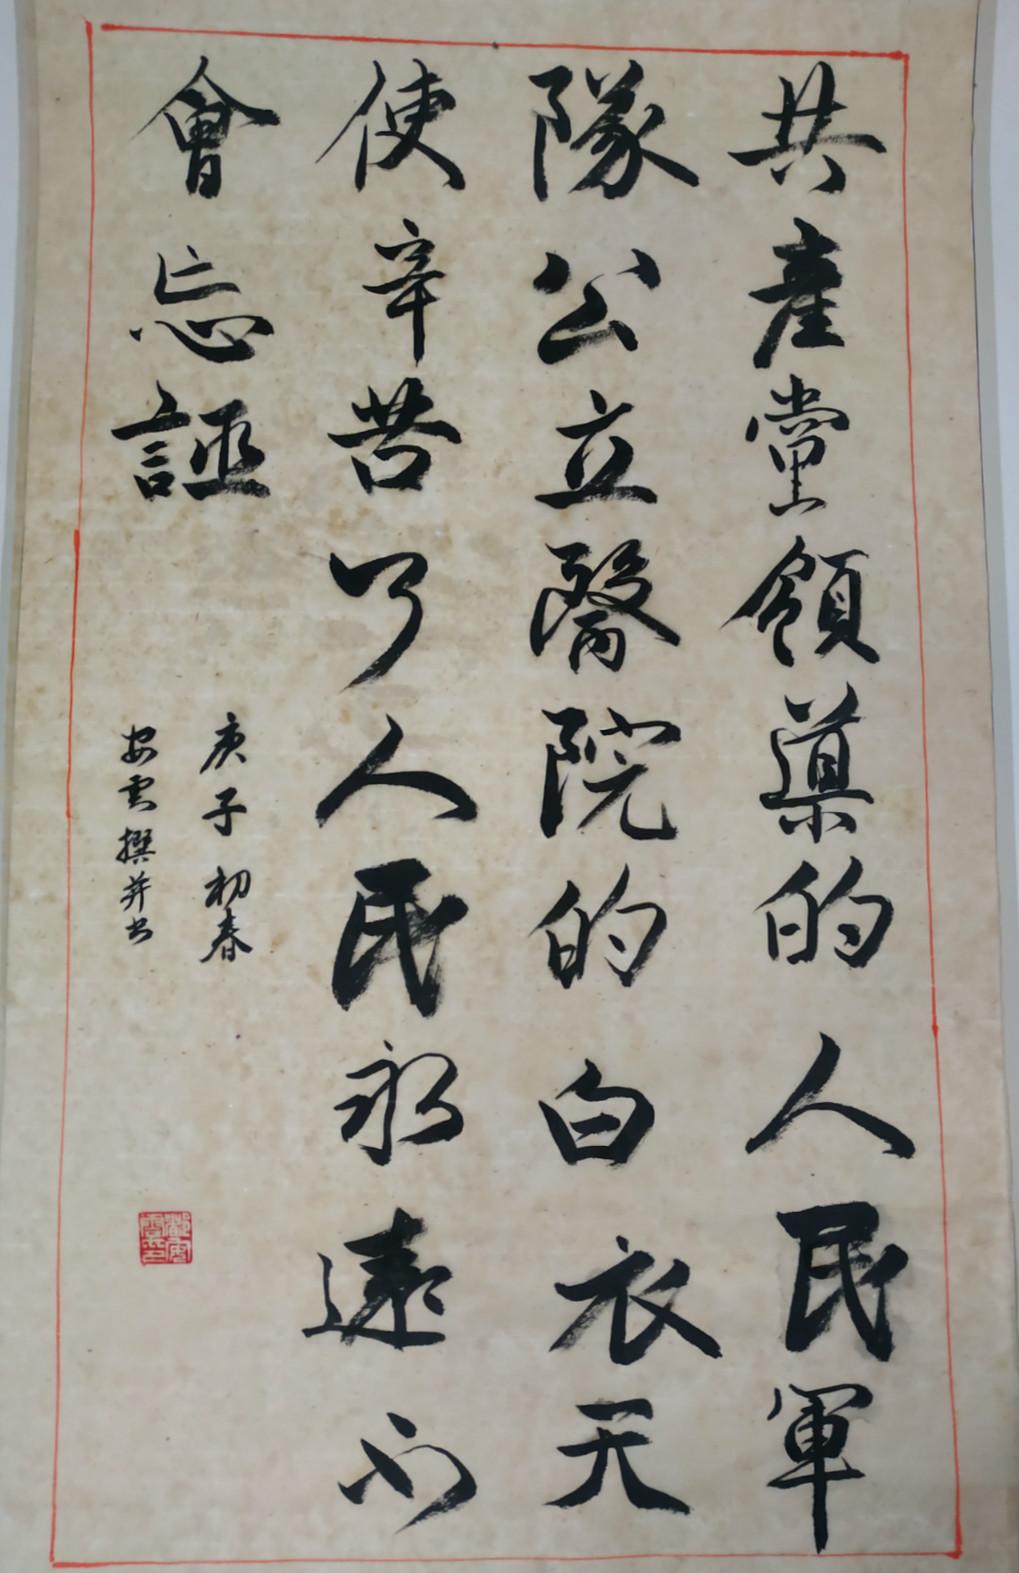 共產黨領導的人民軍
隊公立醫院的白衣天
使辛苦了人民永遠不
會忘誣
庚子初春
安雲撰并书